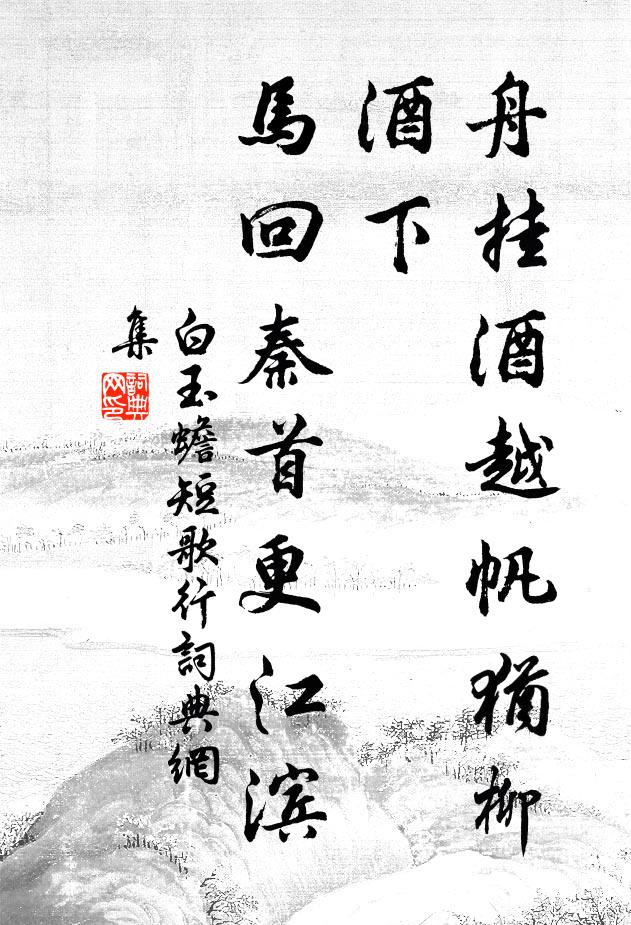 舟挂酒越帆猶柳
酒下
馬回秦首更江濱
白玉蟾短歌行詞典網
集
詞典網印